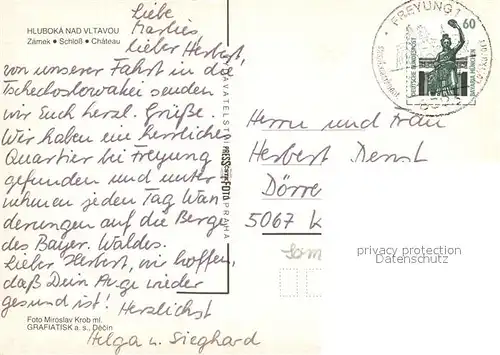 HLUBOKÁ NAD VLTAVOU
Zámek • Schloß • Château
Liebe
Marlies,
lieber Herbert,
von unserer Fahrt in die
Tschechoslowakei senden
wir Euch herzl. Grüße.
Wir haben ein herrliches
Quartier bei Freyung
gefunden und unter-
nehmen jeden Tag Wan
derungen auf die Berge
des Bayer. Waldes.
Lieber Herbert, wir hoffen,
daß Dein Auge wieder
gesund ist! Herzlichst
Helga u. Sieghard
Foto Miroslav Krob ml.
GRAFIATISK a. s., Děčín
PRESSFOTO
PRAHA
FREYUNG 1
60
DEUTSCHE BUNDESPOST
Herrn und Frau
Herbert Denst
Dörre
5067 K
privacy protection
www.ansichtskarten-center.de